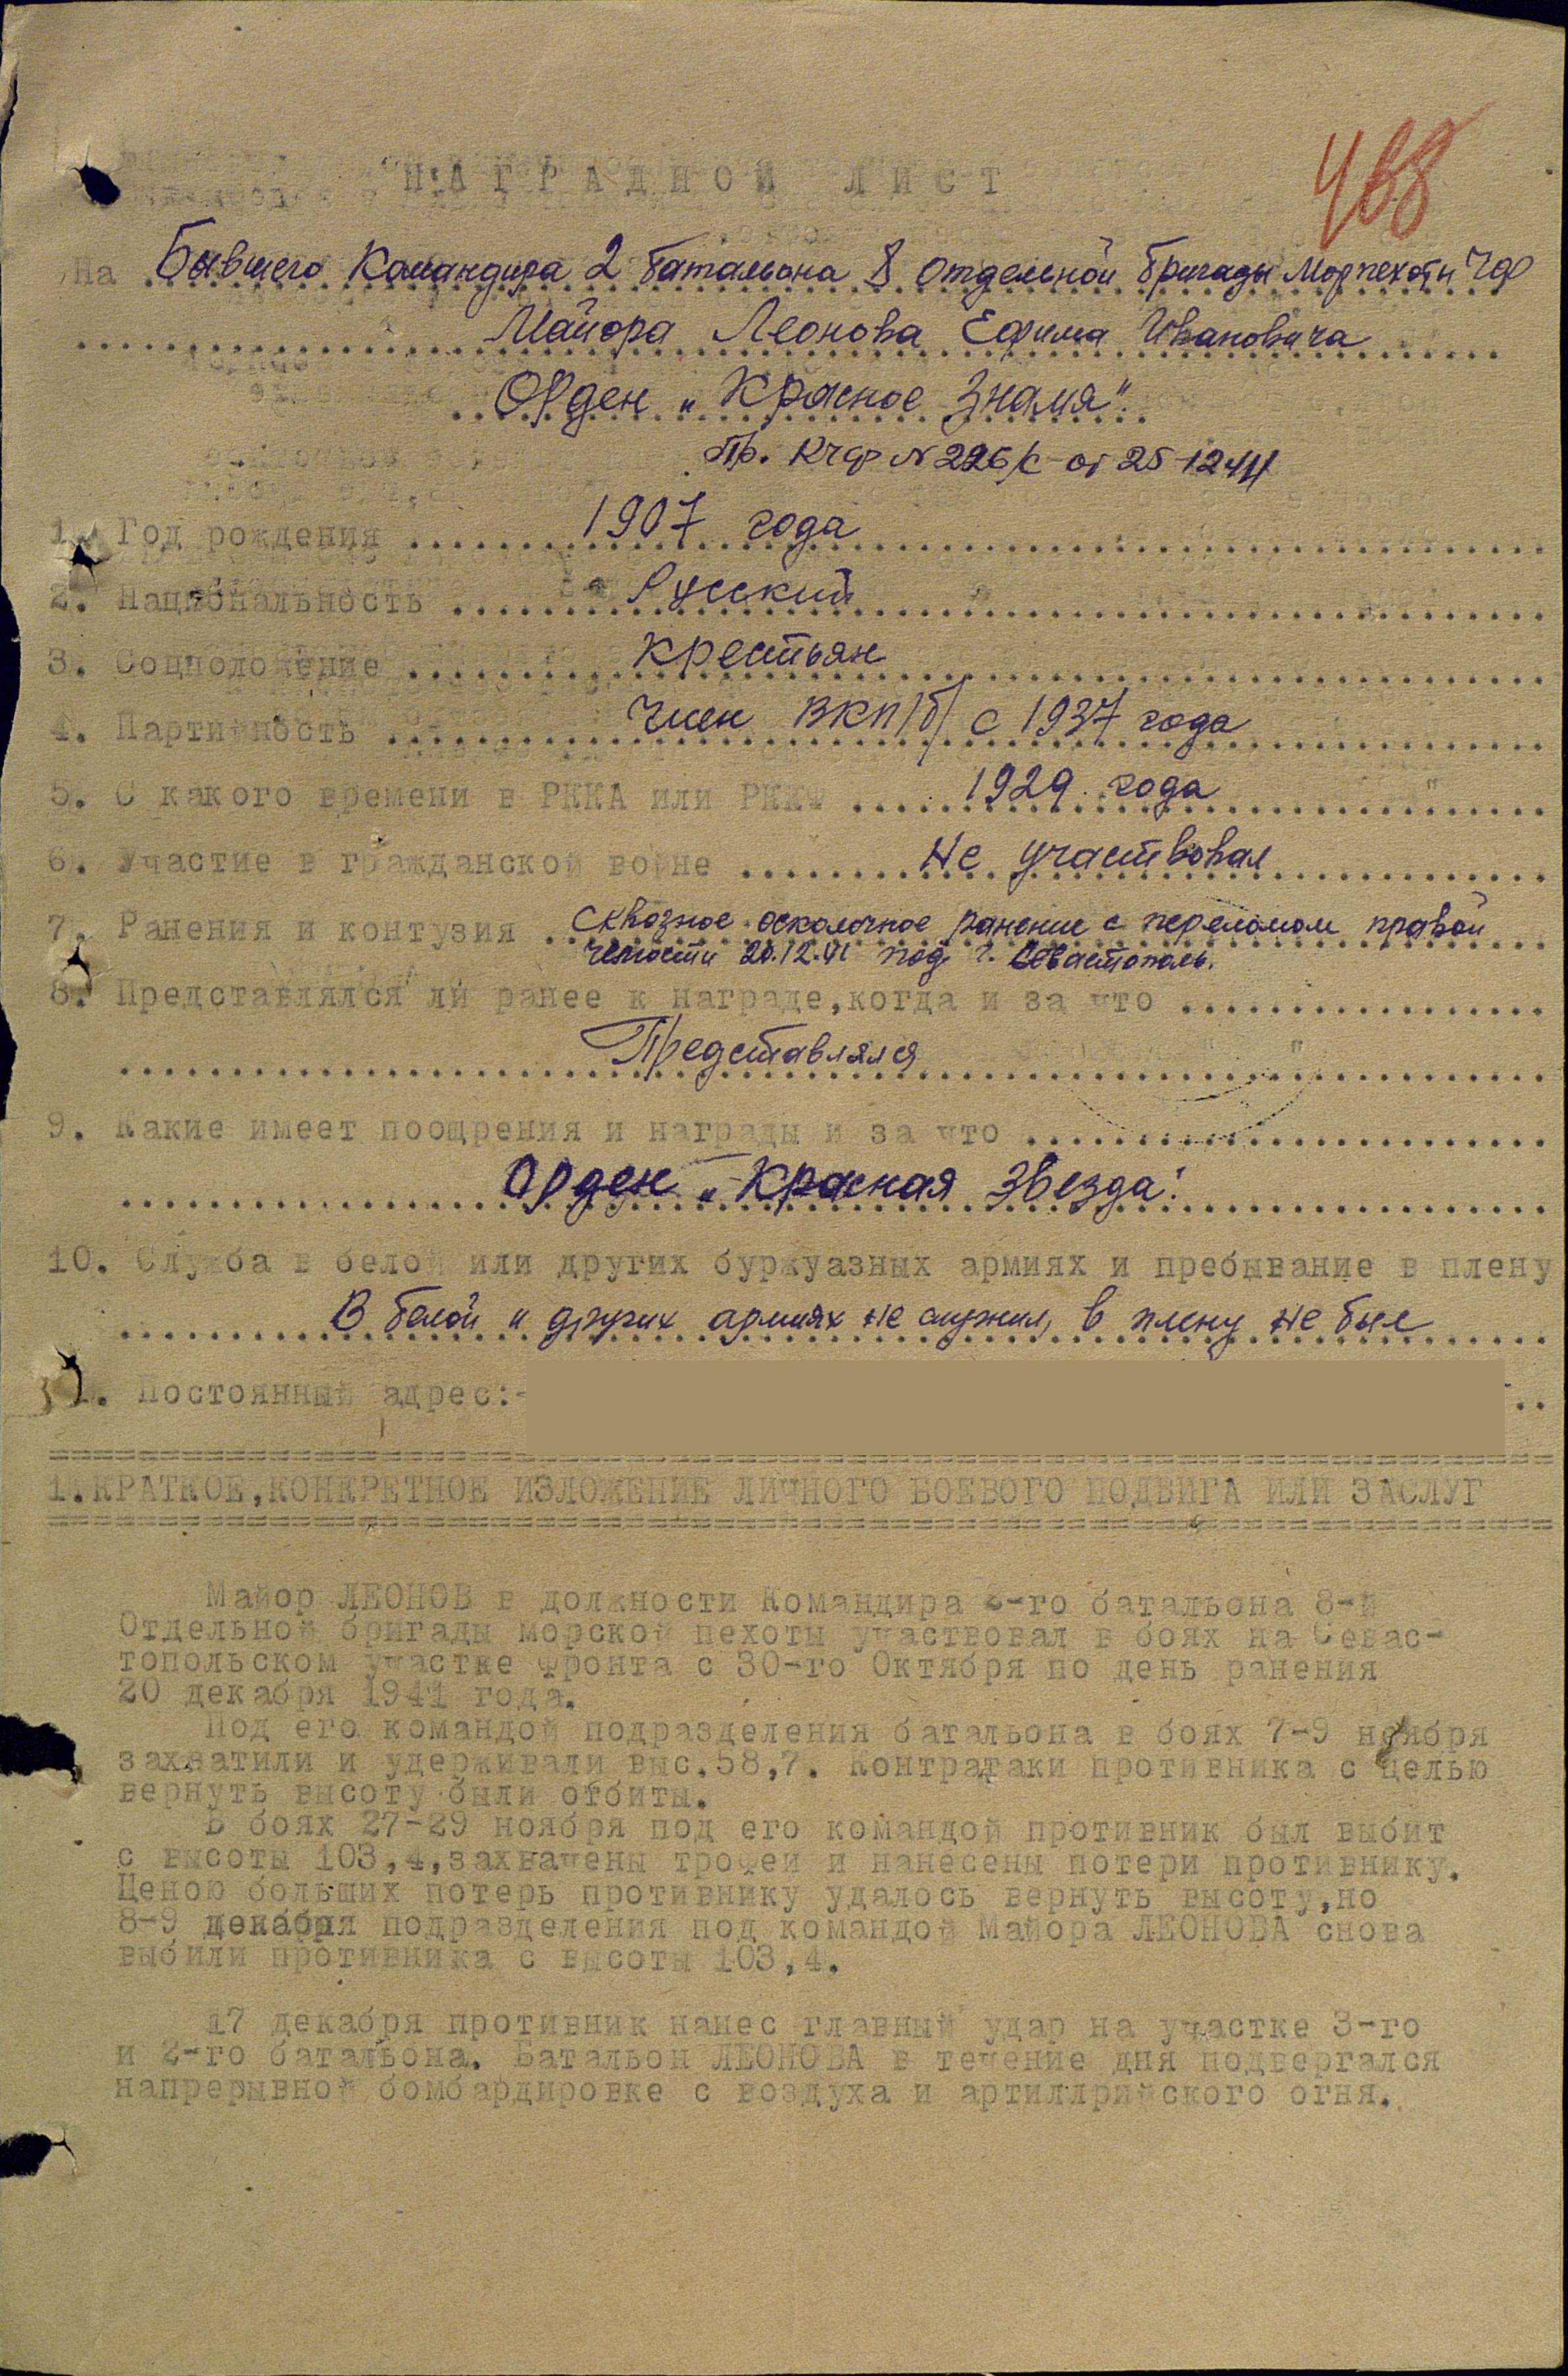 488
НАГРАДНОЙ ЛИСТ
На Бывшего Командира 2 батальона 8 отдельной бригады морпехоты ЧФ
Майора Леонова Ефима Ивановича
Орден „Красное Знамя".
Пр. КЧФ № 226/с от 25 12 44
1. Год рождения 1907 года
2. Национальность Русский
3. Соцположение крестьян
4. Партийность Член ВКП/б/ с 1937 года
5. С какого времени в РККА или РККФ 1929 года
6. Участие в гражданской войне Не участвовал
7. Ранения и контузия Сквозное осколочное ранение с переломом правой
челюсти 20.12.41 под г. Севастополь.
8. Представлялся ли ранее к награде, когда и за что
Представлялся
9. Какие имеет поощрения и награды и за что
Орден „Красная Звезда"
10. Служба в белой или других буржуазных армиях и пребывание в плену
В белой и других армиях не служил, в плену не был
1. Постоянный адрес:-
1. КРАТКОЕ, КОНКРЕТНОЕ ИЗЛОЖЕНИЕ ЛИЧНОГО БОЕВОГО ПОДВИГА ИЛИ ЗАСЛУГ
Майор ЛЕОНОВ в должности Командира -го батальона 8-й
Отдельной бригады морской пехоты участвовал в боях на Севас-
топольском участке фронта с 30-го Октября по день ранения
20 декабря 1941 года.
Под его командой подразделения батальона в боях 7-9 ноября
захватили и удерживали выс.58,7. Контратаки противника с целью
вернуть высоту были отбиты.
В боях 27-29 ноября под его командой противник был выбит
с высоты 103,4,захвачены трофеи и нанесены потери противнику.
Ценою больших потерь противнику удалось вернуть высоту,но
8-9 декабря подразделения под командой Майора ЛЕОНОВА снова
выбили противника с высоты 103,4.
17 декабря противник нанес главный удар на участке 3-го
и 2-го батальона. Батальон ЛЕОНОВА в течение дня подвергался
напрерывной бомбардировке с воздуха и артиллрийского огня.